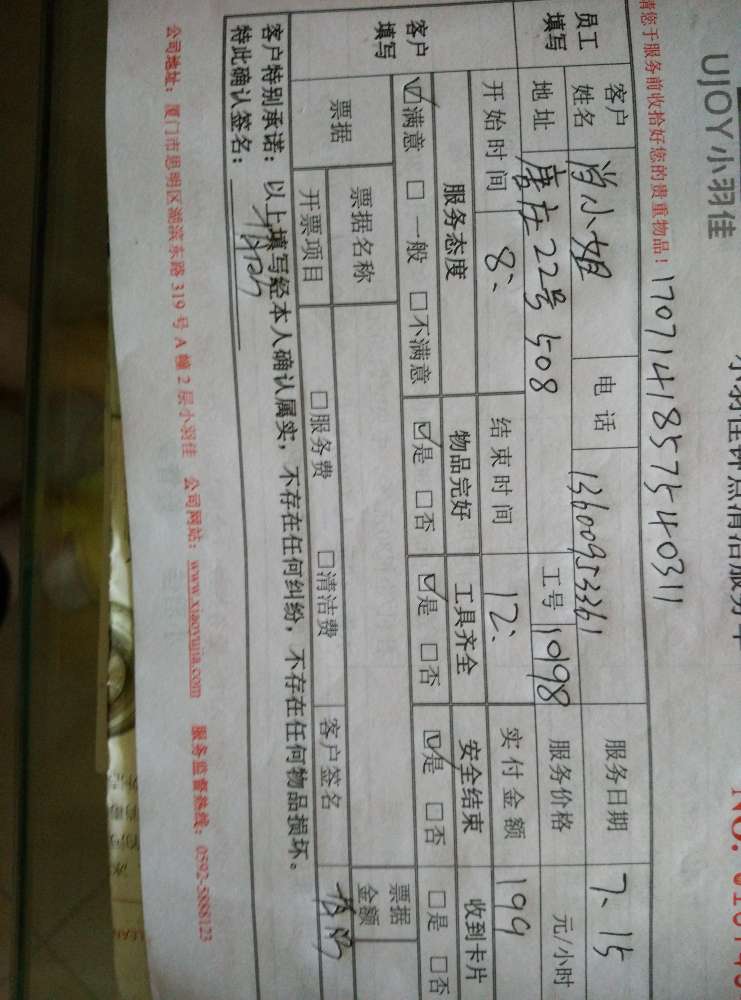 UJOY小羽佳
小羽佳钟点清洁服务单
NO.
请您于服务前收拾好您的贵重物品！ 1707141857540311
员工填写 客户姓名 肖小姐 电话 13600953361 服务日期 7、15
地址 唐庄22号508 工号 1998 服务价格 元/小时
开始时间 8: 结束时间 12: 实付金额 199
客户填写 服务态度 物品完好 工具齐全 安全结束 收到卡片
☑满意 □一般 □不满意 ☑是 □否 ☑是 □否 ☑是 □否 □是 □否
票据 票据名称 票据金额
开票项目 □服务费 □清洁费 客户签名
客户特别承诺：以上填写经本人确认属实，不存在任何纠纷，不存在任何物品损坏。
特此确认签名：
公司地址：厦门市思明区湖滨东路 319 号 A 幢 2 层小羽佳 公司网站：www.xiaoyujia.com 服务监督热线：0592-5888123